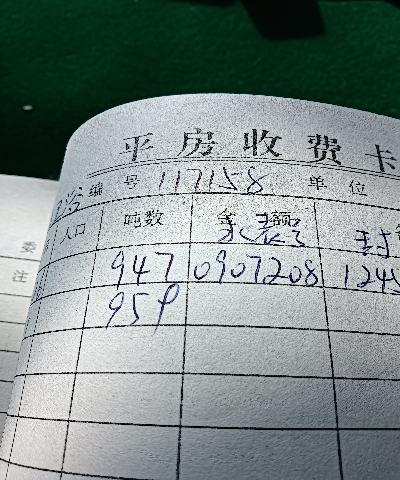 平房收费卡
编号 117158 单位
人口 吨数 金额 水表号 封
947 0907208 1245
959
委
注